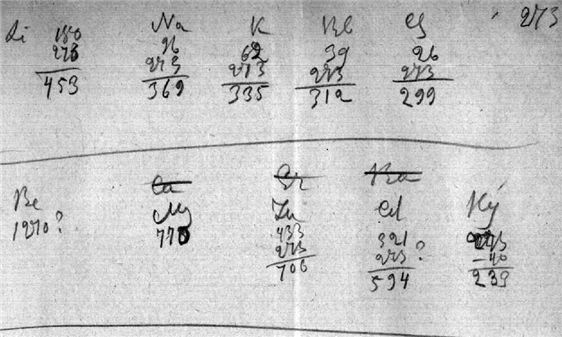 273
Li Na K Rb Cs
180 96 62 39 26
273 273 273 273 273
453 369 335 312 299
Ca Sr Ba
Be Mg Zn Cd Hg
1270? 433 321 273
273 273? -40
706 594 239